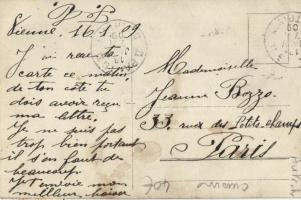 P. P.
Vienne, 16/1 09
J'ai reçu ta
carte ce matin,
de ton côté tu
dois avoir reçu
ma lettre.
Je ne suis pas
trop bien portant
il s'en faut de
beaucoup.
meilleur baiser
Mademoiselle
Jeanne Bozzo
33, rue des Petits-champs
Paris